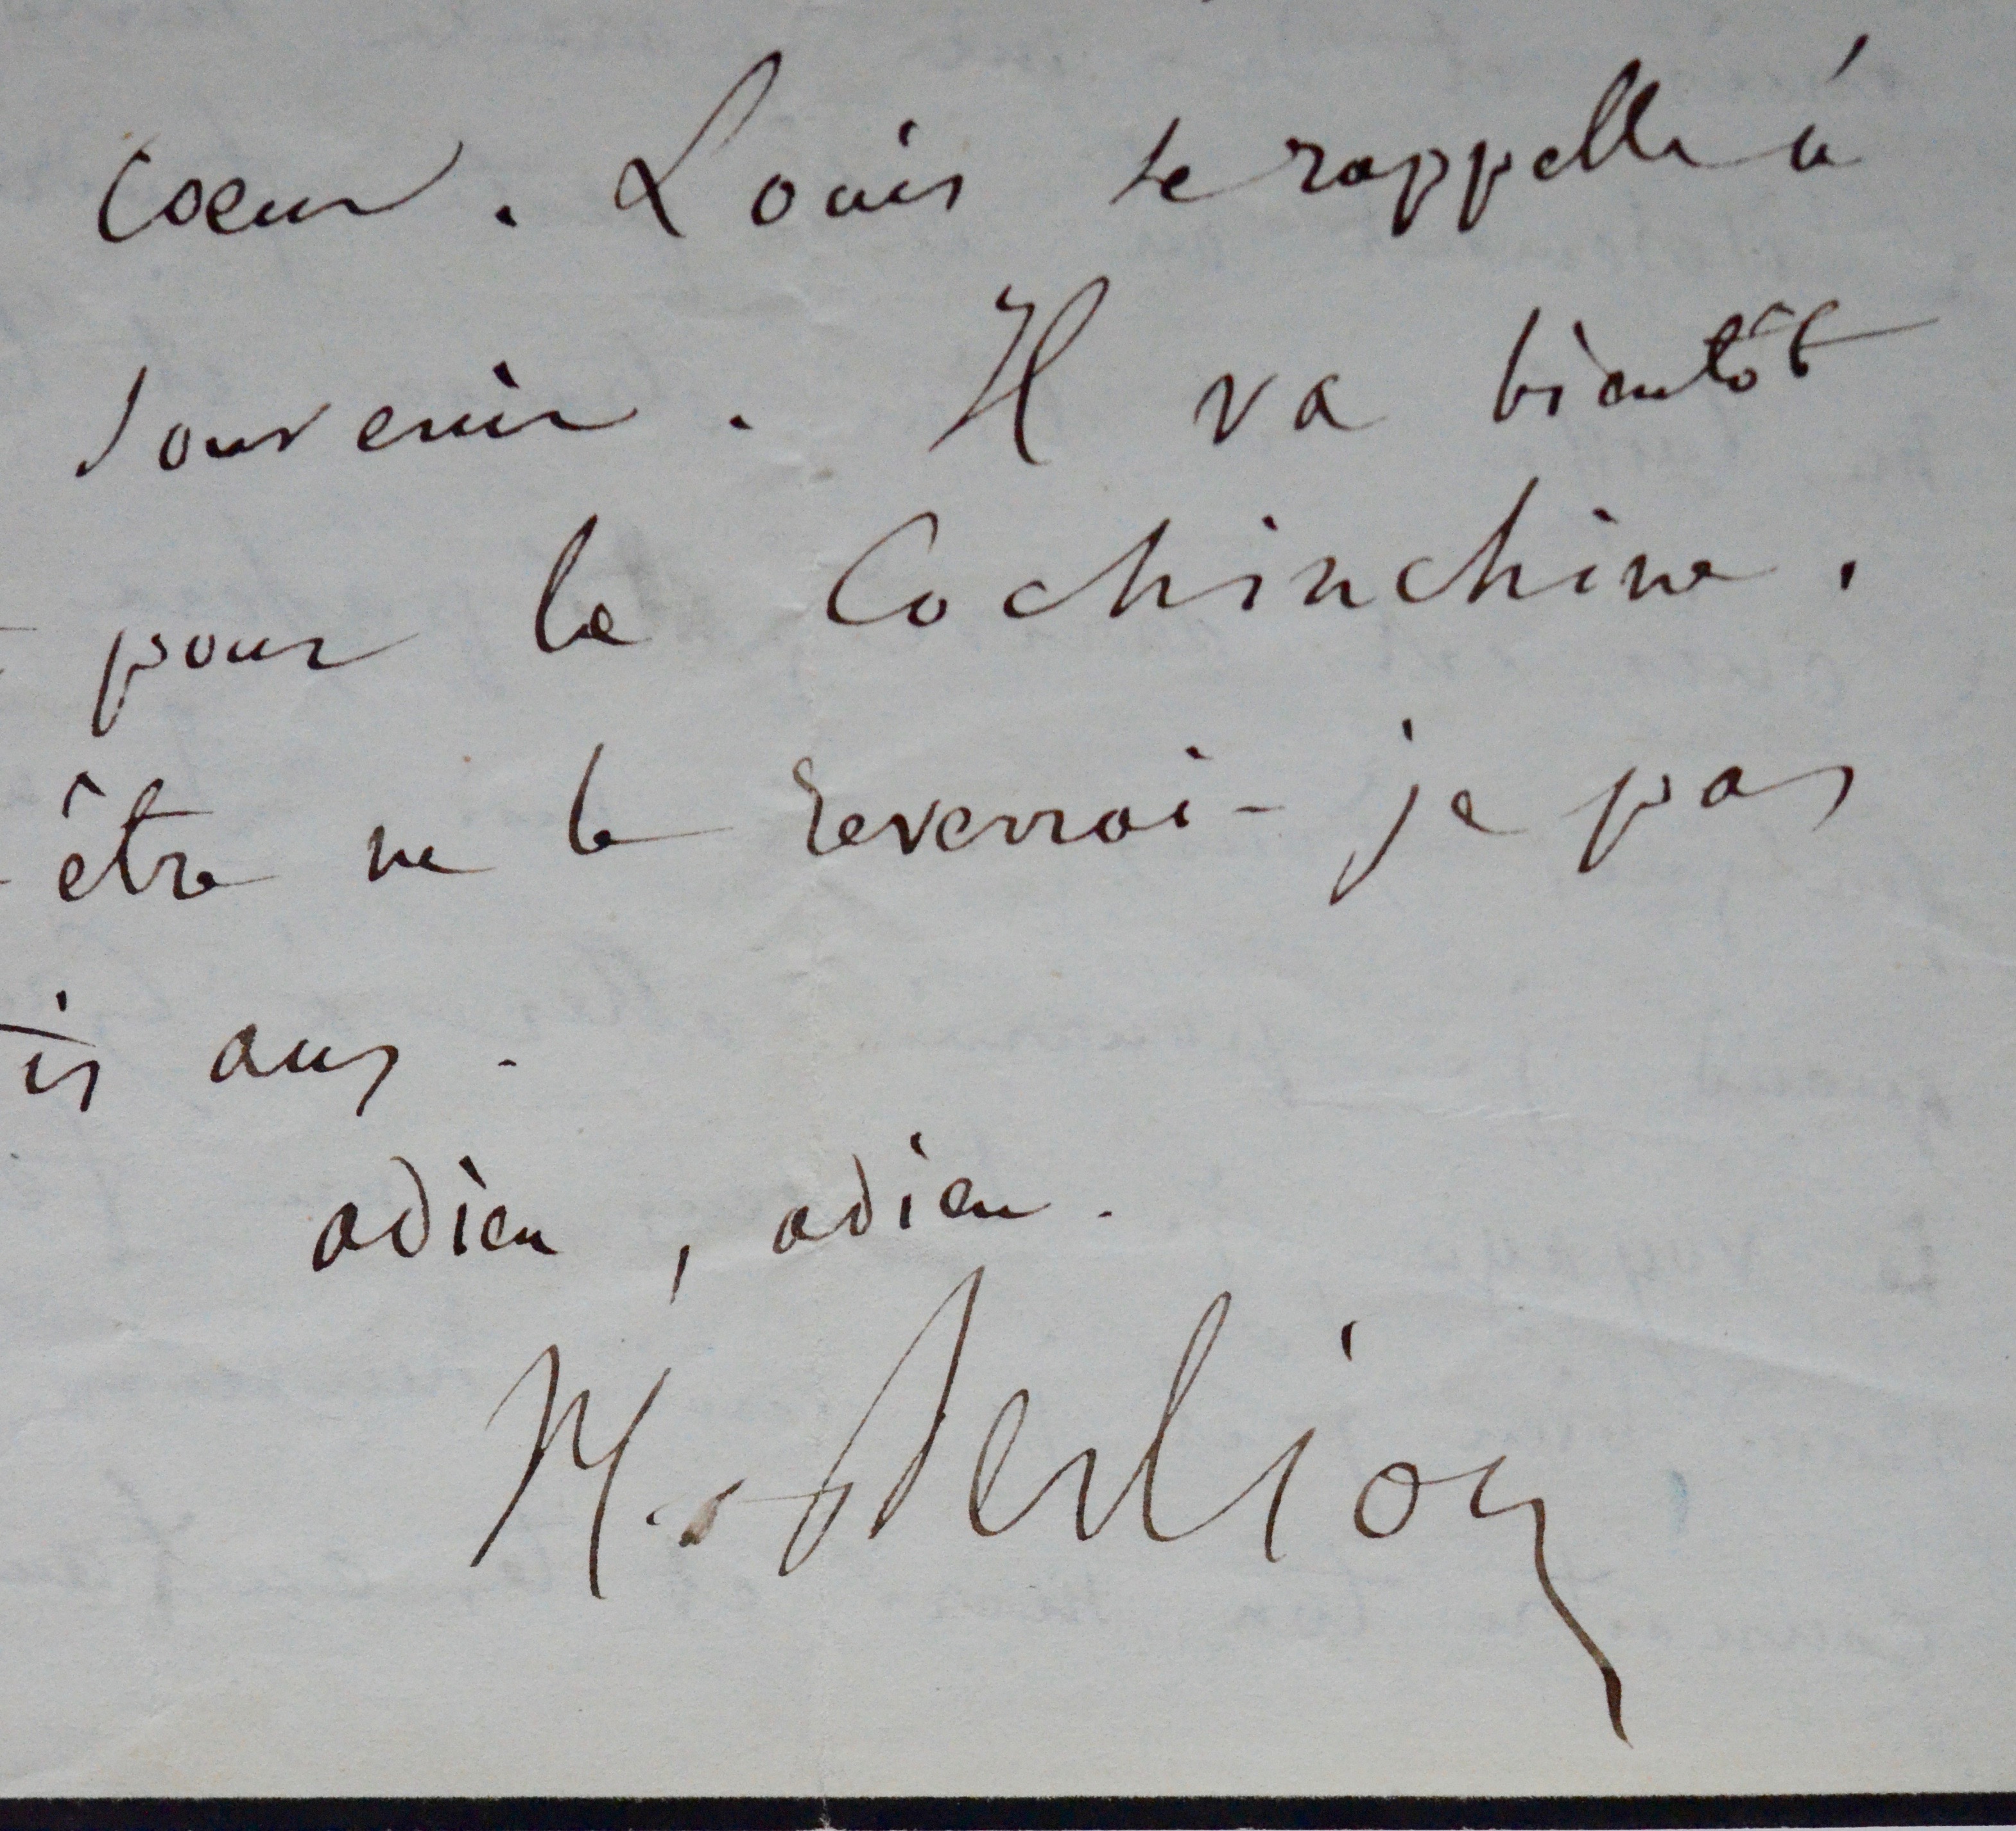 coeur. Louis se rappelle à
souvenir. Il va bientôt
pour la Cochinchine.
-être ne le reverrai-je pas
is ans.
adieu, adieu.
H. Berlioz